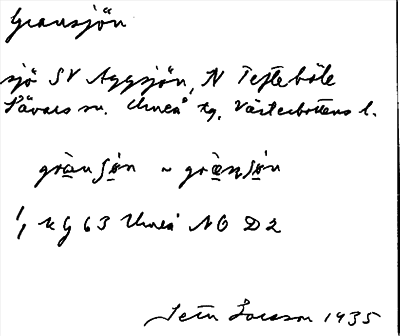 Gransjön
sjö SV Aggsjön, N Tefteböle
Sävars sn. Umeå tg, Västerbottens l.
grànsọn ~ grànsọn
1/1 kg 63 Umeå NO D2
Seth Larsson 1935